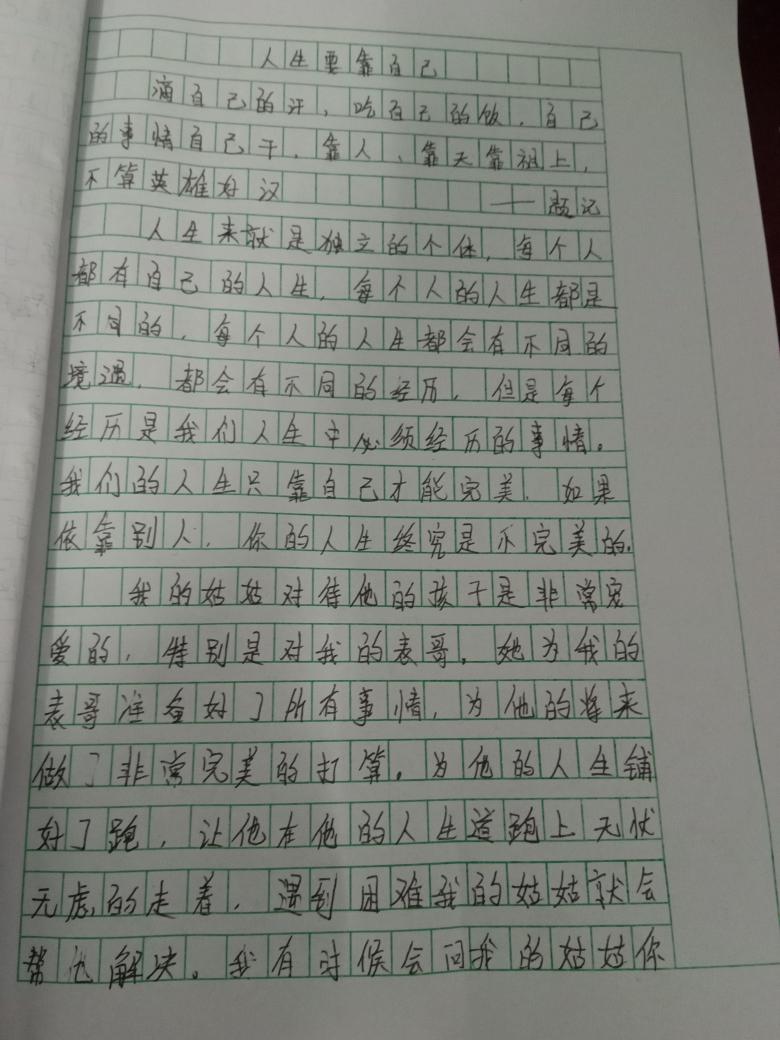 人生要靠自己
滴自己的汗，吃自己的饭，自己
的事情自己干，靠人、靠天靠祖上，
不算英雄好汉
——题记
人生来就是独立的个体，每个人
都有自己的人生，每个人的人生都是
不同的，每个人的人生都会有不同的
境遇，都会有不同的经历，但是每个
经历是我们人生中必须经历的事情。
我们的人生只靠自己才能完美，如果
依靠别人，你的人生终究是不完美的。
我的姑姑对待他的孩子是非常宠
爱的，特别是对我的表哥。她为我的
表哥准备好了所有事情，为他的将来
做了非常完美的打算。为他的人生铺
好了跑，让他在他的人生道跑上无忧
无虑的走着，遇到困难我的姑姑就会
帮他解决。我有时候会问我的姑姑你